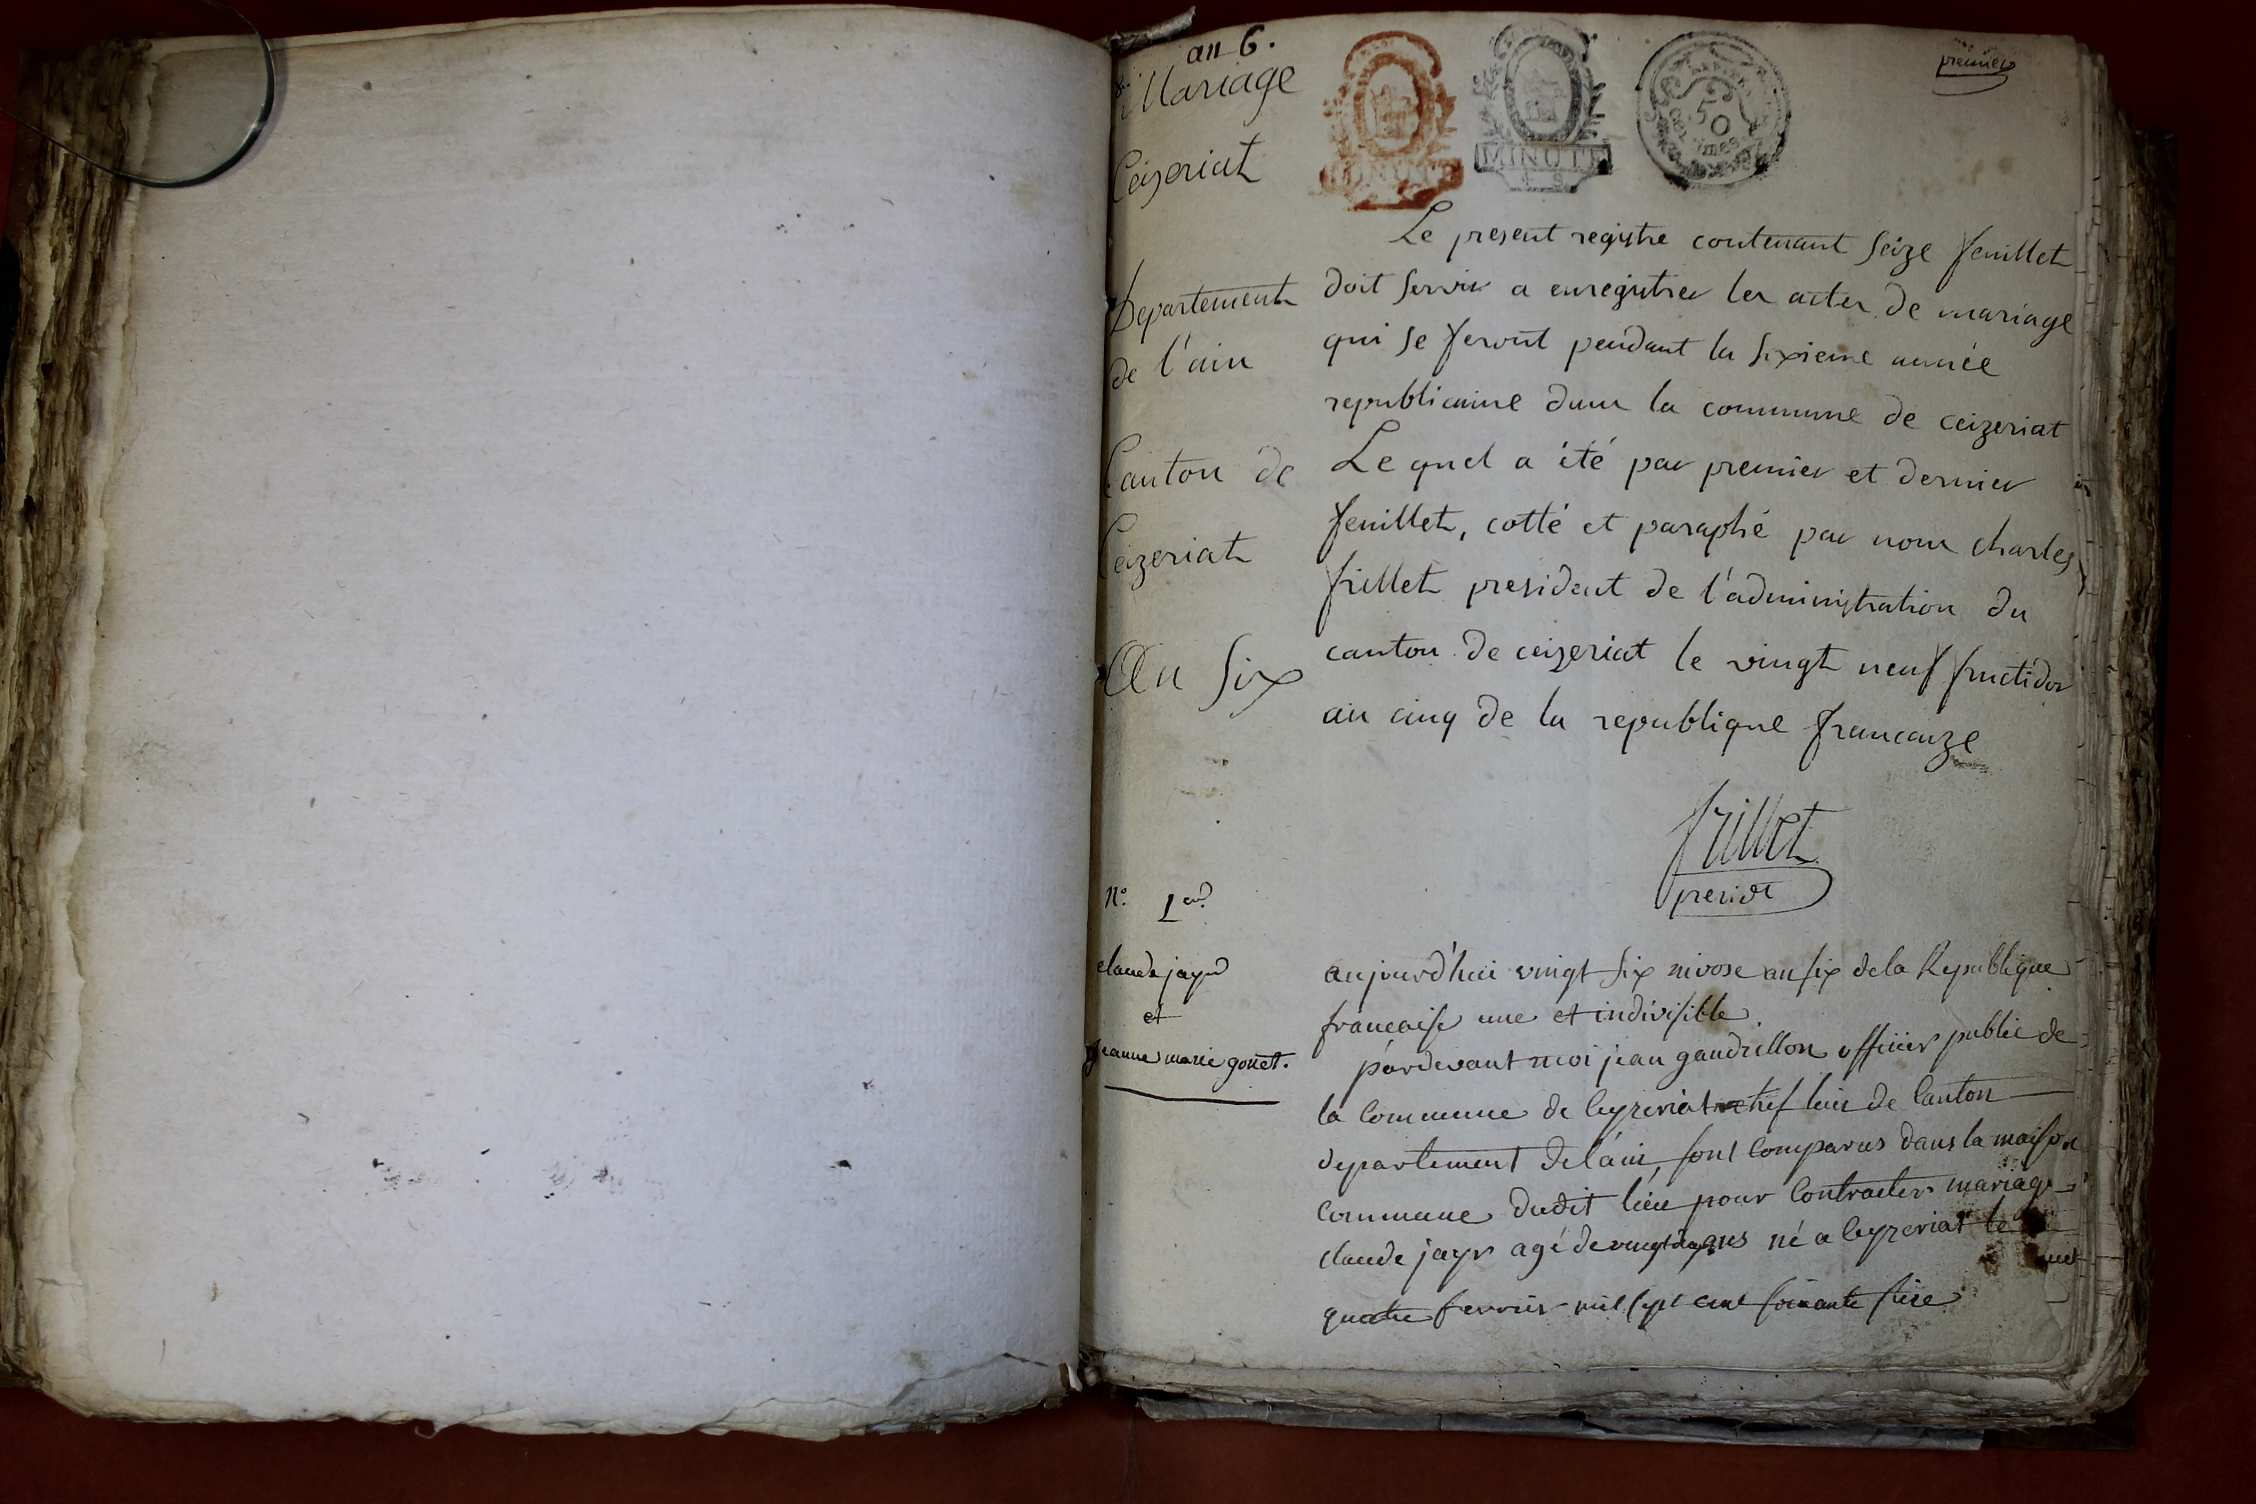 an 6.
Mariage
premier
MINUTE
50
CENTIMES
Ceizeriat
Departement
de l'ain
Canton de
Ceizeriat
An Six
Le present registre contenant seize feuillet
doit servir a enregistrer les actes de mariage
qui se feront pendant la sixieme année
republicaine dans la commune de ceizeriat
Le quel a été par premier et dernier
feuillet, cotté et paraphé par nous charles
frillet president de l'administration du
canton de ceizeriat le vingt neuf fructidor
an cinq de la republique francaize
frillet
presidt
N.° 1er
claude jayr
et
jeanne marie gonet.
aujourd'hui vingt six nivose an six de la Republique
francaise une et indivisible
pardevant moi jean gaudrillon officier public de
la Commune de Ceyzeriat chef lieu de Canton
departement de l'ain, sont Comparus dans la maison
Commune dudit lieu pour Contracter mariage
claude jayr agé de vingt ans né a Ceyzeriat le
quatre fevrier mil sept cent soixante seize